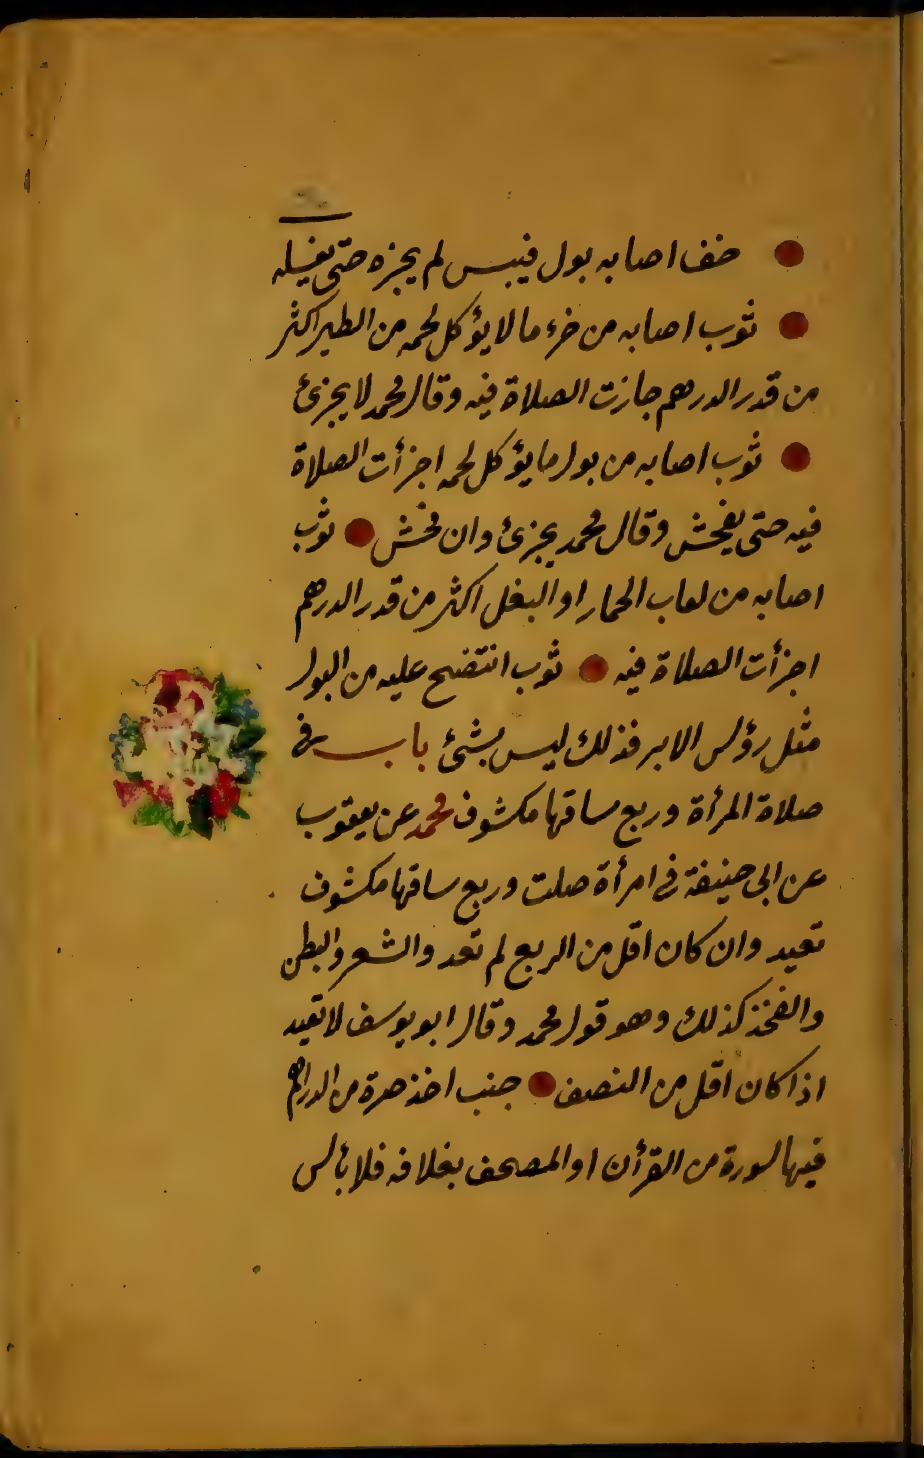 ● خف اصابه بول فيبس لم يجزه حتى يغسله
● ثوب اصابه من خرء ما لا يؤكل لحمه من الطير اكثر
من قدر الدرهم جازت الصلاة فيه وقال محمد لا يجزئ
● ثوب اصابه من بول ما يؤكل لحمه اجزأت الصلاة
فيه حتى يفحش وقال محمد يجزئ وان فحش ● ثوب
اصابه من لعاب الحمار او البغل اكثر من قدر الدرهم
اجزأت الصلاة فيه ● ثوب انتضح عليه من البول
مثل رؤس الابر فذلك ليس بشئ باب في
صلاة المرأة وربع ساقها مكشوف محمد عن يعقوب
عن ابى حنيفة فى امرأة صلت وربع ساقها مكشوف
تعيد وان كان اقل من الربع لم تعد والشعر والبطن
والفخذ كذلك وهو قول محمد وقال ابو يوسف لا تعيد
اذا كان اقل من النصف ● جنب اخذ صرة من الدراهم
فيها سورة من القرأن او المصحف بغلافه فلا بأس